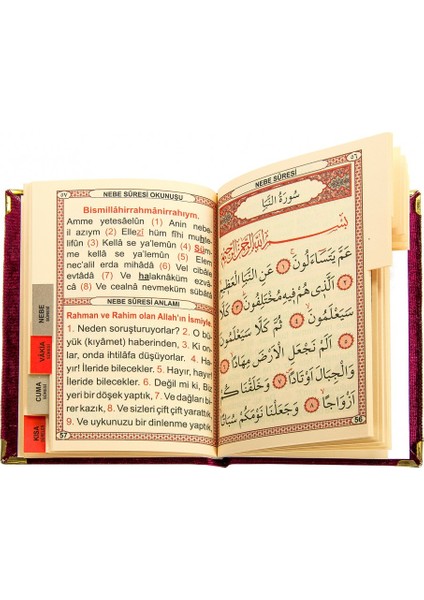 ٥٧
NEBE SÛRESİ OKUNUŞU
Bismillâhirrahmânirrahıym.
Amme yetesâelûn (1) Anin nebe
il azıym (2) Ellezî hüm fîhi muhte
lifûn (3) Kellâ se ya'lemûn (4) Süm
me kellâ se ya'lemûn (5) Elem
nec'alil erda mihâdâ (6) Vel cibâle
evtâdâ (7) Ve halaknâküm ezvâ
câ (8) Ve cealnâ nevmeküm sübâtâ
NEBE SÛRESİ ANLAMI
Rahman ve Rahim olan Allah'ın İsmiyle
1. Neden soruşturuyorlar? 2. O bü
yük (kıyâmet) haberinden, 3. Ki on
lar, onda ihtilâfa düşüyorlar. 4. Ha
yır! İleride bilecekler. 5. Hayır, hayır!
İleride bilecekler. 6. Değil mi ki, Biz
yeri bir döşek yaptık, 7. Ve dağları bi
rer kazık, 8. Ve sizleri çift çift yarattık,
9. Ve uykunuzu bir dinlenme yaptık,
57
NEBE
SÛRESİ
VÂKIA
SÛRESİ
CUMA
SÛRESİ
KISA
SÛRELER
NEBE SÛRESİ
٥٦
سُورَةُ النَّبَأِ
بِسْمِ اللهِ الرَّحْمٰنِ الرَّحِيمِ
عَمَّ يَتَسَاءَلُونَ ﴿١﴾ عَنِ النَّبَأِ الْعَظِيمِ
﴿٢﴾ الَّذِي هُمْ فِيهِ مُخْتَلِفُونَ ﴿٣﴾ كَلَّا
سَيَعْلَمُونَ ﴿٤﴾ ثُمَّ كَلَّا سَيَعْلَمُونَ
﴿٥﴾ اَلَمْ نَجْعَلِ الْاَرْضَ مِهَادًا ﴿٦﴾
وَالْجِبَالَ اَوْتَادًا ﴿٧﴾ وَخَلَقْنَاكُمْ
اَزْوَاجًا ﴿٨﴾ وَجَعَلْنَا نَوْمَكُمْ سُبَاتًا
56